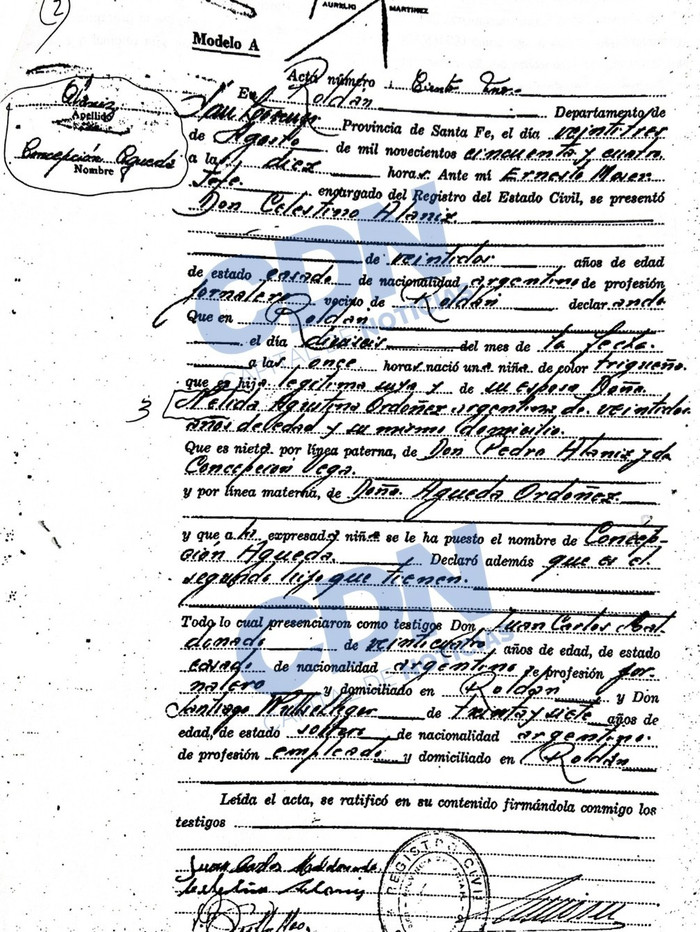 (2)
AURELIO MARTINEZ
Modelo A
Acta número Ciento
En Roldán Departamento de
San Lorenzo Provincia de Santa Fe, el día veintitres
de Agosto de mil novecientos cincuenta y cuatro
a las diez horas. Ante mí Ernesto
Jefe encargado del Registro del Estado Civil, se presentó
Don Celestino Alaniz
de veintidos años de edad
de estado casado de nacionalidad argentino de profesión
jornalero vecino de Roldán declarando
Que en Roldán
el día del mes de la fecha
a las once horas nació una niña de color trigueño
que es hija legítima suya y de su esposa Doña
3 Nelida Agustina Ordoñez argentina de veintidos
años de edad y su mismo domicilio.
Que es nieta por línea paterna, de Don Pedro Alaniz y de
Concepcion Vega.
y por línea materna, de Doña Agueda Ordoñez
y que a la expresada niña se le ha puesto el nombre de Concep-
ción Agueda. Declaró además que es el
segundo hijo que tienen.
Todo lo cual presenciaron como testigos Don Juan Carlos Mal-
donado de veinticuatro años de edad, de estado
casado de nacionalidad argentino de profesión jor-
nalero y domiciliado en Roldán y Don
Santiago de treinta y siete años de
edad, de estado soltero de nacionalidad argentino.
de profesión empleado y domiciliado en Roldán
Leída el acta, se ratificó en su contenido firmándola conmigo los
testigos
Juan Carlos Maldonado
REGISTRO CIVIL
Apellido
Concepción Agueda
Nombre
CDN
CAPITAL DE NOTICIAS
CDN
CAPITAL DE NOTICIAS